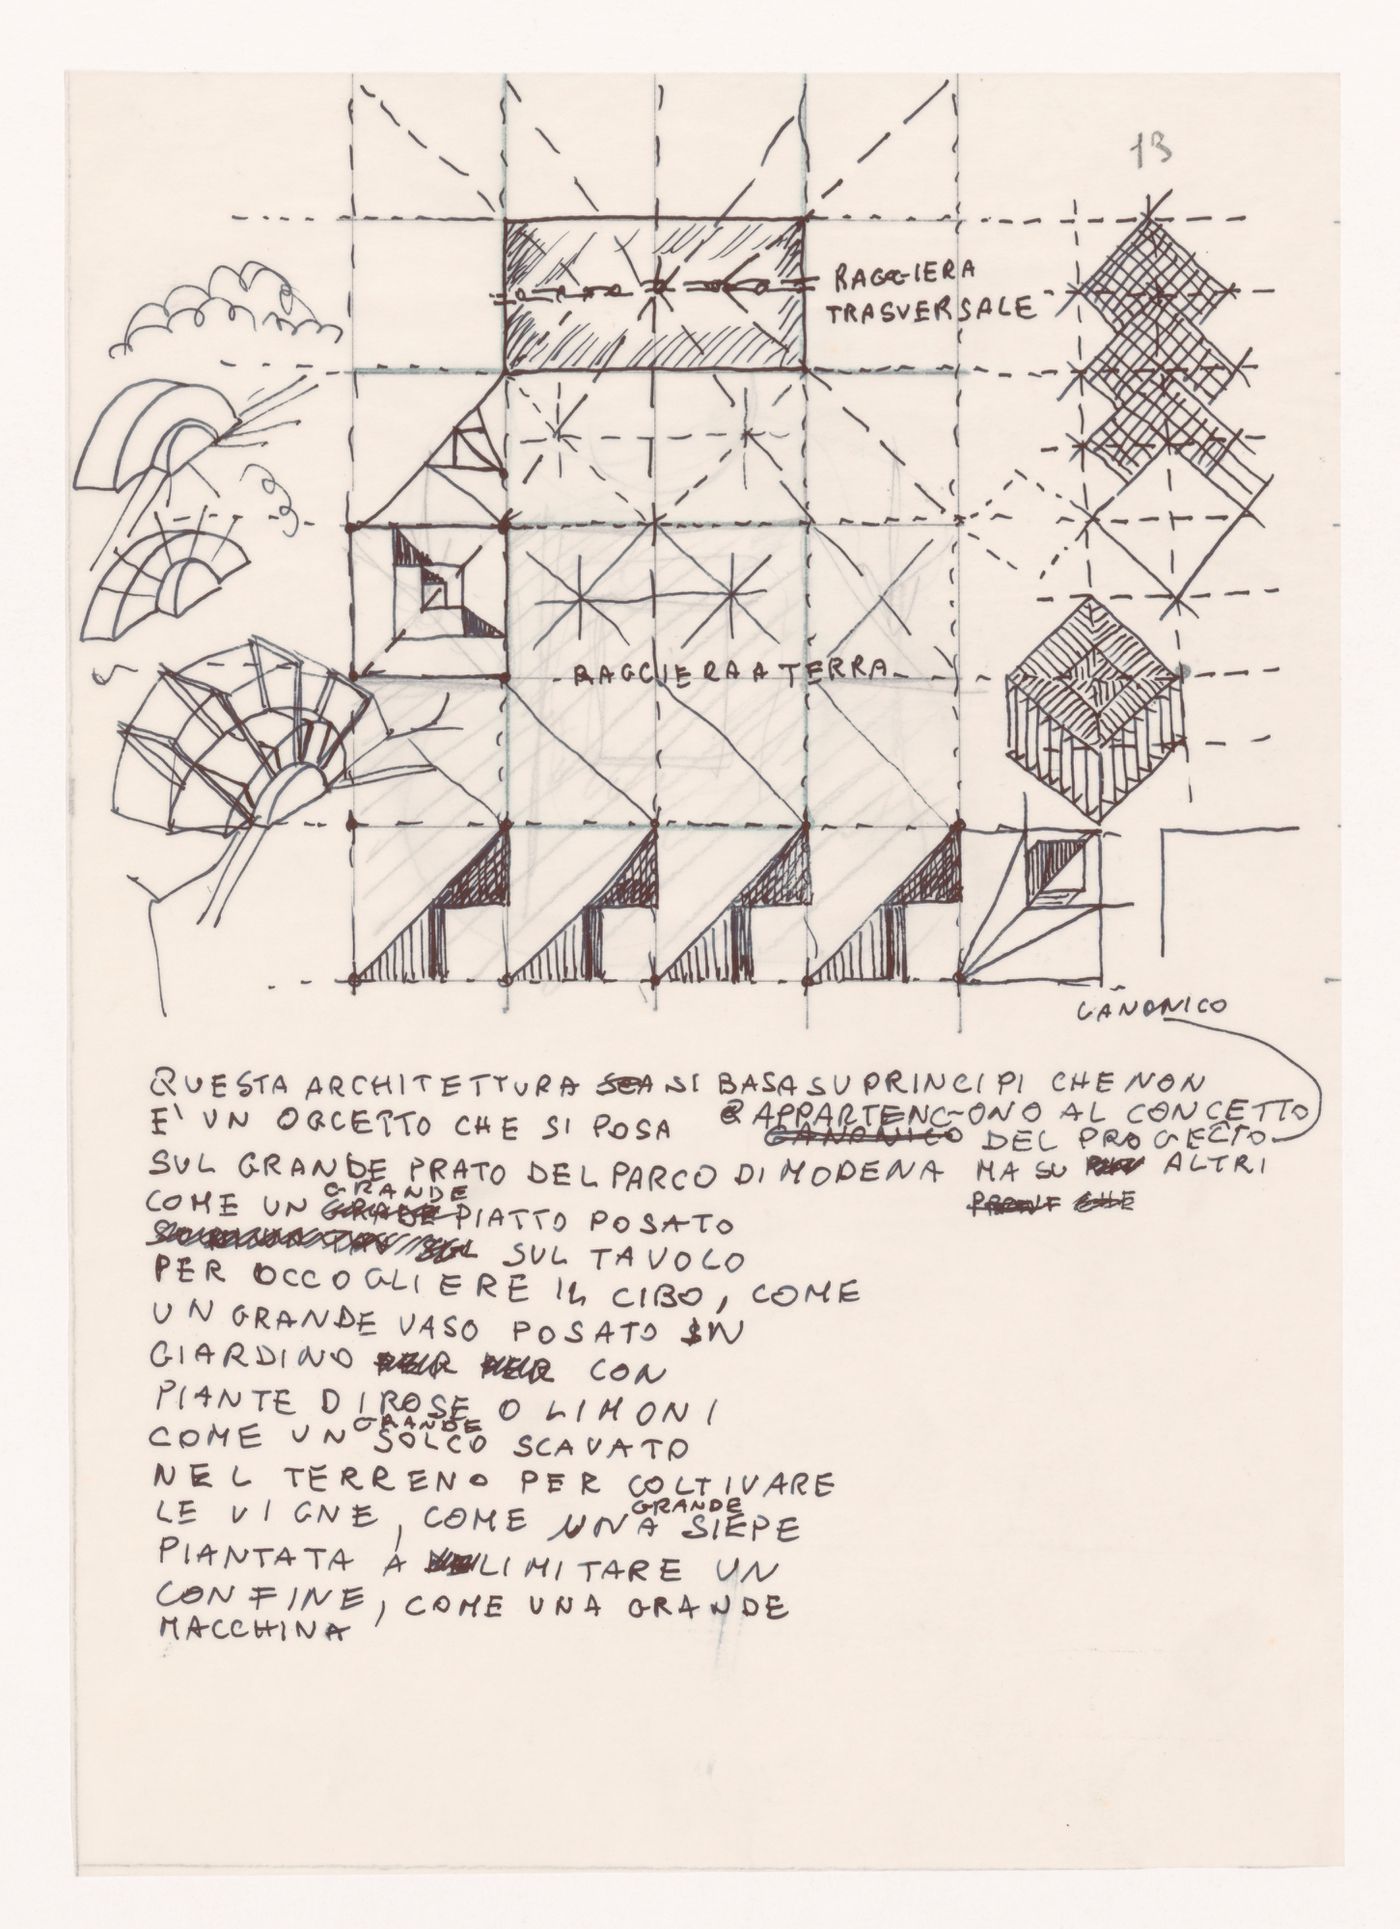 13
RAGGIERA
TRASVERSALE
RAGGIERA A TERRA
CANONICO
QUESTA ARCHITETTURA SI BASA SU PRINCIPI CHE NON
APPARTENGONO AL CONCETTO
E' UN OGGETTO CHE SI POSA
CANONICO DEL PROGETTO
SUL GRANDE PRATO DEL PARCO DI MODENA MA SU ALTRI
GRANDE
COME UN GRANDE PIATTO POSATO CHE
SUL TAVOLO
PER OCCOGLIERE IL CIBO, COME
UN GRANDE VASO POSATO IN
GIARDINO CON
PIANTE DI ROSE O LIMONI
GRANDE
COME UN SOLCO SCAVATO
NEL TERRENO PER COLTIVARE
GRANDE
LE VIGNE, COME UNA SIEPE
PIANTATA A LIMITARE UN
CONFINE, COME UNA GRANDE
MACCHINA